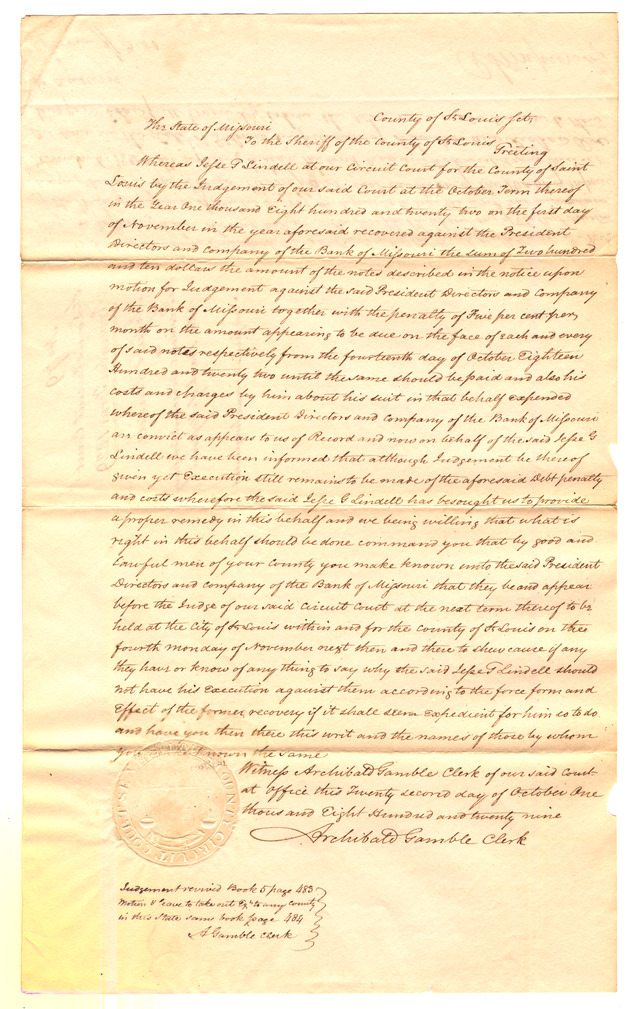 County of St Louis Sct,
The State of Missouri
To the Sheriff of the County of St Louis Greeting
Whereas Jesse G Lindell at our Circuit Court for the County of Saint
Louis by the Judgement of our said Court at the October Term thereof
in the Year One thousand Eight hundred and twenty two on the first day
of November in the year aforesaid recovered against the President
Directors and Company of the Bank of Missouri the sum of Two hundred
and ten dollars the amount of the notes described in the notice upon
motion for Judgement against the said President Directors and Company
of the Bank of Missouri together with the penalty of Five per cent per
month on the amount appearing to be due on the face of each and every
of said notes respectively from the fourteenth day of October Eighteen
Hundred and twenty two until the same should be paid and also his
costs and charges by him about his suit in that behalf expended
whereof the said President Directors and Company of the Bank of Missouri
are convict as appears to us of Record and now on behalf of the said Jesse G
Lindell we have been informed that although Judgement be thereof
given yet Execution still remains to be made of the aforesaid Debt penalty
and costs wherefore the said Jesse G Lindell has besought us to provide
a proper remedy in this behalf and we being willing that what is
right in this behalf should be done command you that by good and
Lawful men of your County you make known unto the said President
Directors and Company of the Bank of Missouri that they be and appear
before the Judge of our said Circuit Court at the next term thereof to be
held at the City of St Louis within and for the County of St Louis on the
fourth monday of November next then and there to shew cause if any
they have or know of any thing to say why the said Jesse G Lindell should
not have his Execution against them according to the force form and
Effect of the former recovery if it shall seem Expedient for him so to do
and have you then there this writ and the names of those by whom
known the same
Witness Archibald Gamble Clerk of our said Court
at Office this Twenty second day of October One
thousand Eight Hundred and twenty nine
Archibald Gamble Clerk
Judgement revived Book 5 page 483
Motion & leave to take out Exn to any county
in this State same book page 484
A Gamble Clerk